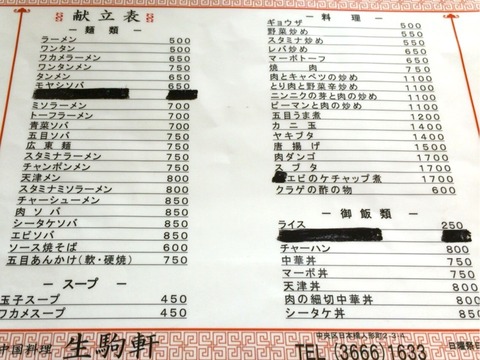 献立表
－ 麺 類 －
ラーメン 500
ワンタン 500
ワカメラーメン 650
ワンタンメン 750
タンメン 650
モヤシソバ 650
ミソラーメン 700
トーフラーメン 700
青菜ソバ 700
五目ソバ 750
広東麺 750
スタミナラーメン 750
チャンポンメン 750
天津メン 800
スタミナミソラーメン 800
チャーシューメン 800
肉ソバ 800
シータケソバ 800
エビソバ 800
ソース焼そば 600
五目あんかけ(軟・硬焼) 750
－ スープ －
玉子スープ 450
ワカメスープ 450
－ 料 理 －
ギョウザ 500
野菜炒め 550
スタミナ炒め 650
レバ炒め 650
マーボトーフ 650
焼肉
肉とキャベツの炒め 1000
とり肉と野菜辛炒め 1000
ニンニクの芽と肉の炒め 1000
ピーマンと肉の炒め 1000
五目うま煮 1200
カニ玉 1400
ヤキブタ 1400
唐揚げ 1500
肉ダンゴ
スブタ
エビのケチャップ煮 1700
クラゲの酢の物 600
－ 御 飯 類 －
ライス 250
チャーハン 800
中華丼 750
マーボ丼 750
天津丼 800
肉の細切中華丼 800
シータケ丼 800
中国料理 生駒軒
中央区日本橋人形町2-3-4
TEL(3666)1633
日曜祭日